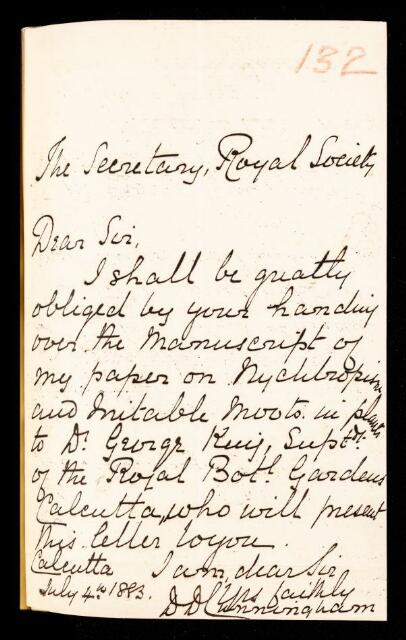 132
The Secretary, Royal Society
Dear Sir,
I shall be greatly
obliged by your handing
over the Manuscript of
my paper on Nyctitropism
and Irritable Movts. in plants
to Dr. George King, Suptdt.
of the Royal Botl. Gardens
Calcutta, who will present
this letter to you.
Calcutta I am, dear Sir
July 4th 1883. Yrs faithly
D D Cunningham